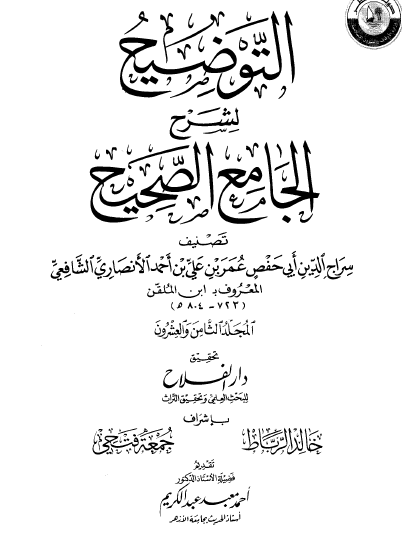 التَّوضيحُ
لِشَرح
الجَامِع الصَّحِيح
تَصْنِيف
سِرَاجِ الدِّينِ أَبي حَفْصٍ عُمَرَ بنِ عَليِّ بنِ أَحمدَ الأَنصَاريِّ الشَّافِعيِّ
المَعْرُوف بـ ابن المُلَقِّن
(٧٢٣ - ٨٠٤ هـ)
المجَلَّدُ الثَّامِنُ وَالعِشْرُونَ
تحقيق
دار الفلاح
للبَحثِ العِلميِّ وَتحقِيقِ التُّراث
بإشراف
خَالد الرَّباط
جُمعَة فَتحي
تقديم
فَضِيلَة الأستاذ الدكتور
أحمد معبد عبد الكريم
أستاذ الحديث بجامعة الأزهر